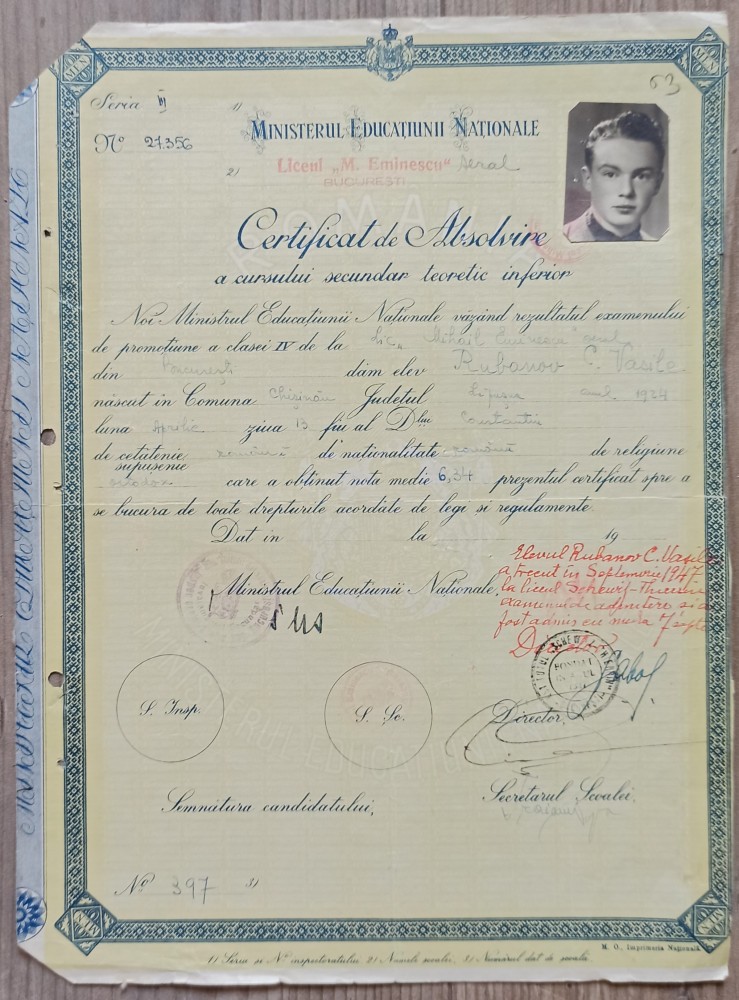 63
Seria VI
1)
Nº 27.356
MINISTERUL EDUCAŢIUNII NAŢIONALE
2)
Liceul „M. Eminescu" seral
BUCUREŞTI
Certificat de Absolvire
a cursului secundar teoretic inferior
Noi Ministrul Educaţiunii Naţionale văzând rezultatul examenului
de promoţiune a clasei IV de la Lic. „Mihail Eminescu" seral
din Bucureşti dăm elev Rubanov C. Vasile
născut in Comuna Chişinău Judeţul Lăpuşna anul 1924
luna Aprilie ziua 13 fiu al Dlui Constantin
de cetăţenie română de naţionalitate română de religiune
supuşenie
ortodox care a obţinut nota medie 6,34 prezentul certificat spre a
se bucura de toate drepturile acordate de legi si regulamente.
Dat in la 19
Elevul Rubanov C. Vasile
a trecut în Septemvrie 1947
la liceul Schewitz-Thierrin
Ministrul Educaţiunii Naţionale,
fost admis cu media 7 şapte
Director
S. Insp.
S. Şc.
Director,
Semnătura candidatului,
Secretarul Şcoalei,
Nº 397 3)
M. O., Imprimeria Naţională
1) Seria si Nº inspectoratului. 2) Numele scoalei. 3) Numărul dat de scoală.